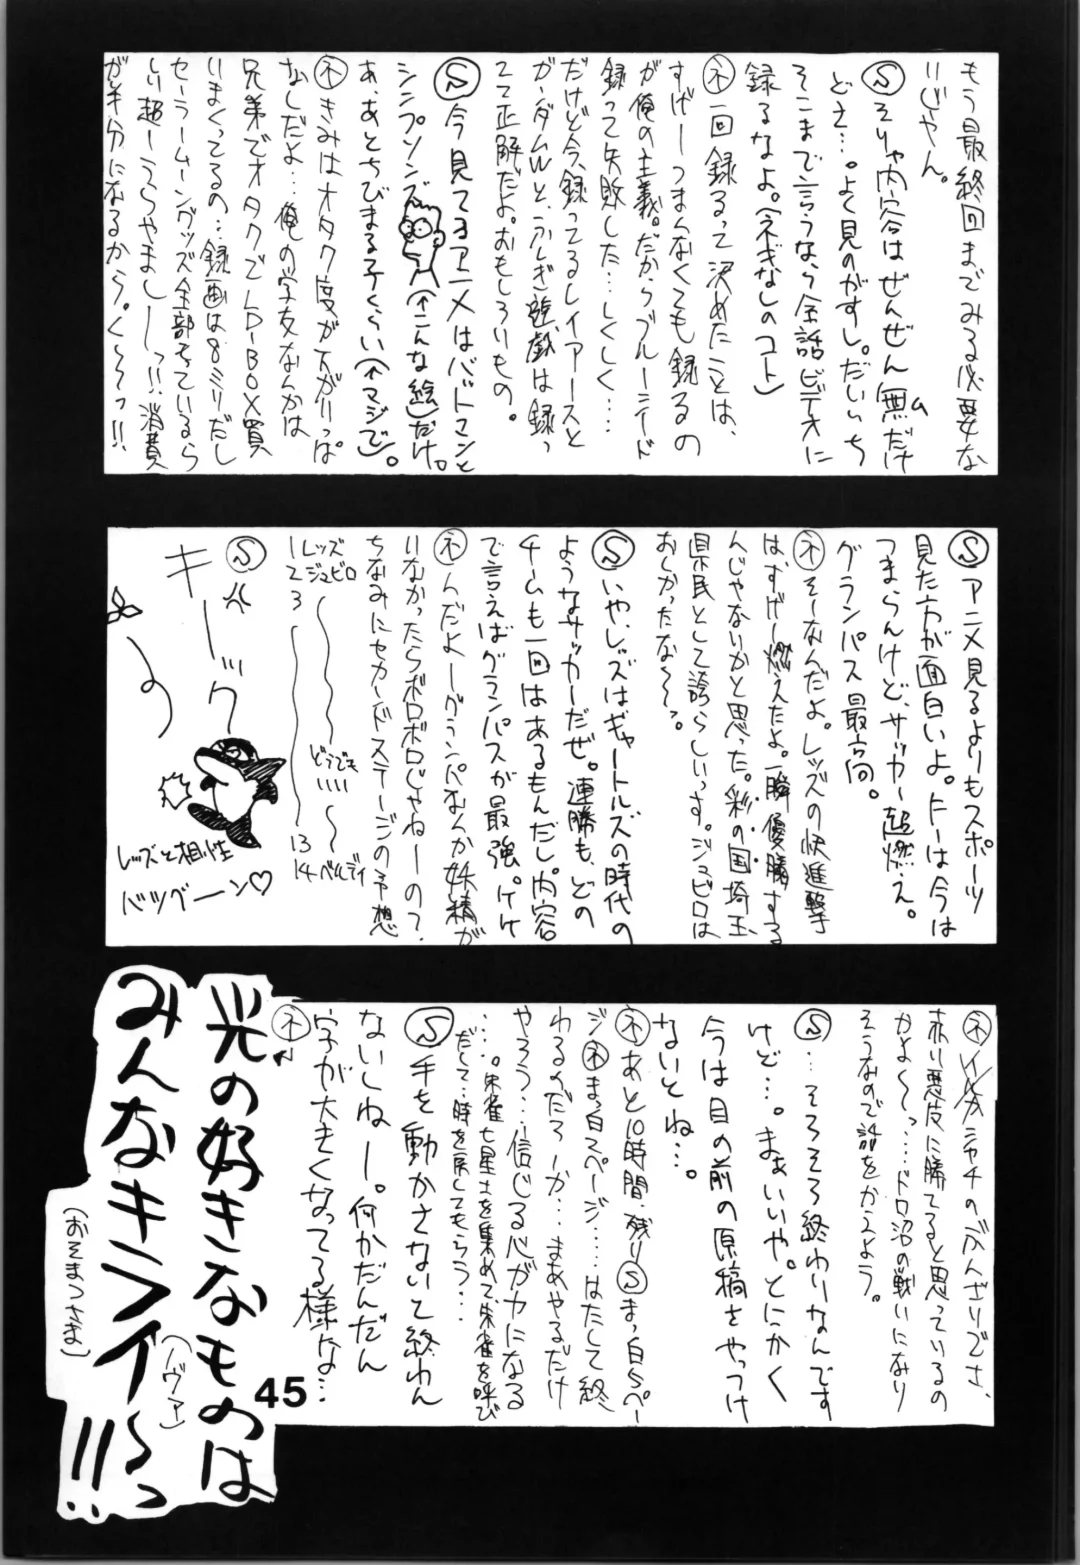 もう最終回までみる必要な
いじゃん。
Ⓢそりゃ内容はぜんぜん無だけ
ム
どさ…。よく見のがすし。だいいち
そこまで言うなら全話ビデオに
録るなよ。(ネギなしのコト)
㋧一回録るって決めたことは、
すげーつまんなくても録るの
が俺の主義。だからブルーシード
録って失敗した…しくしく…
だけど今、録ってるレイアースと
ガンダムWと、ふしぎ遊戯は録っ
てて正解だよ。おもしろいもの。
Ⓢ今見てるアニメはバットマンと
シンプソンズ(↑こんな絵)だけ。
あ、あとちびまる子くらい(↑マジで)。
㋧きみはオタク度が下がりっぱ
なしだよ…俺の学友なんかは
兄弟でオタクでLD-BOX買
いまくってるの…録画は8ミリだし
セーラームーングッズ全部そろっているら
しい超ーうらやましーーっ!!消費
が半分になるから。く〜〜っ!!
Ⓢアニメ見るよりもスポーツ
見た方が面白いよ。トーは今は
つまらんけど、サッカー超燃え。
グランパス最高。
㋧そーなんだよ。レッズの快進撃
はすげー燃えたよ。一瞬優勝する
んじゃないかと思った。彩の国埼玉
県民として誇らしいっす。ジュビロは
おしかったな〜っ。
Ⓢいや、レッズはギャートルズの時代の
ようなサッカーだぜ。連勝も、どの
チームも一回はあるもんだし、内容
で言えばグランパスが最強。ケケ
㋧んだよーグランパなんか妖精が
いなかったらボロボロじゃねーの?
ちなみにセカンドステージの予想
1レッズ
2ジュビロ
3
どうでも
いい
13
14ベルディ
Ⓢ
キーック
レッズと相性
バツグーン♡
㋧イルカシャチのぶんざいでさ、
赤い悪皮に勝てると思っているの
かよ〜っ…ドロ沼の戦いになり
そうなので話をかえよう。
Ⓢ…そろそろ終わりなんです
けど…。まぁいいや。とにかく
今は目の前の原稿をやっつけ
ないとね…。
㋧あと10時間、残りⓈまっ白5ペー
ジ㋧まっ白2ページ……はたして終
わるのだろーか…まあやるだけ
やろう…信じる心が力になる
…。朱雀七星士を集めて、朱雀を呼び
だして…時を戻してもらう…
Ⓢ手を動かさないと終わん
ないしねー。何かだんだん
字が大きくなってる様な…
㋧
光の好きなものは
みんなキライ〜っ!!
(ノヴァ)
(おそまつさま)
45